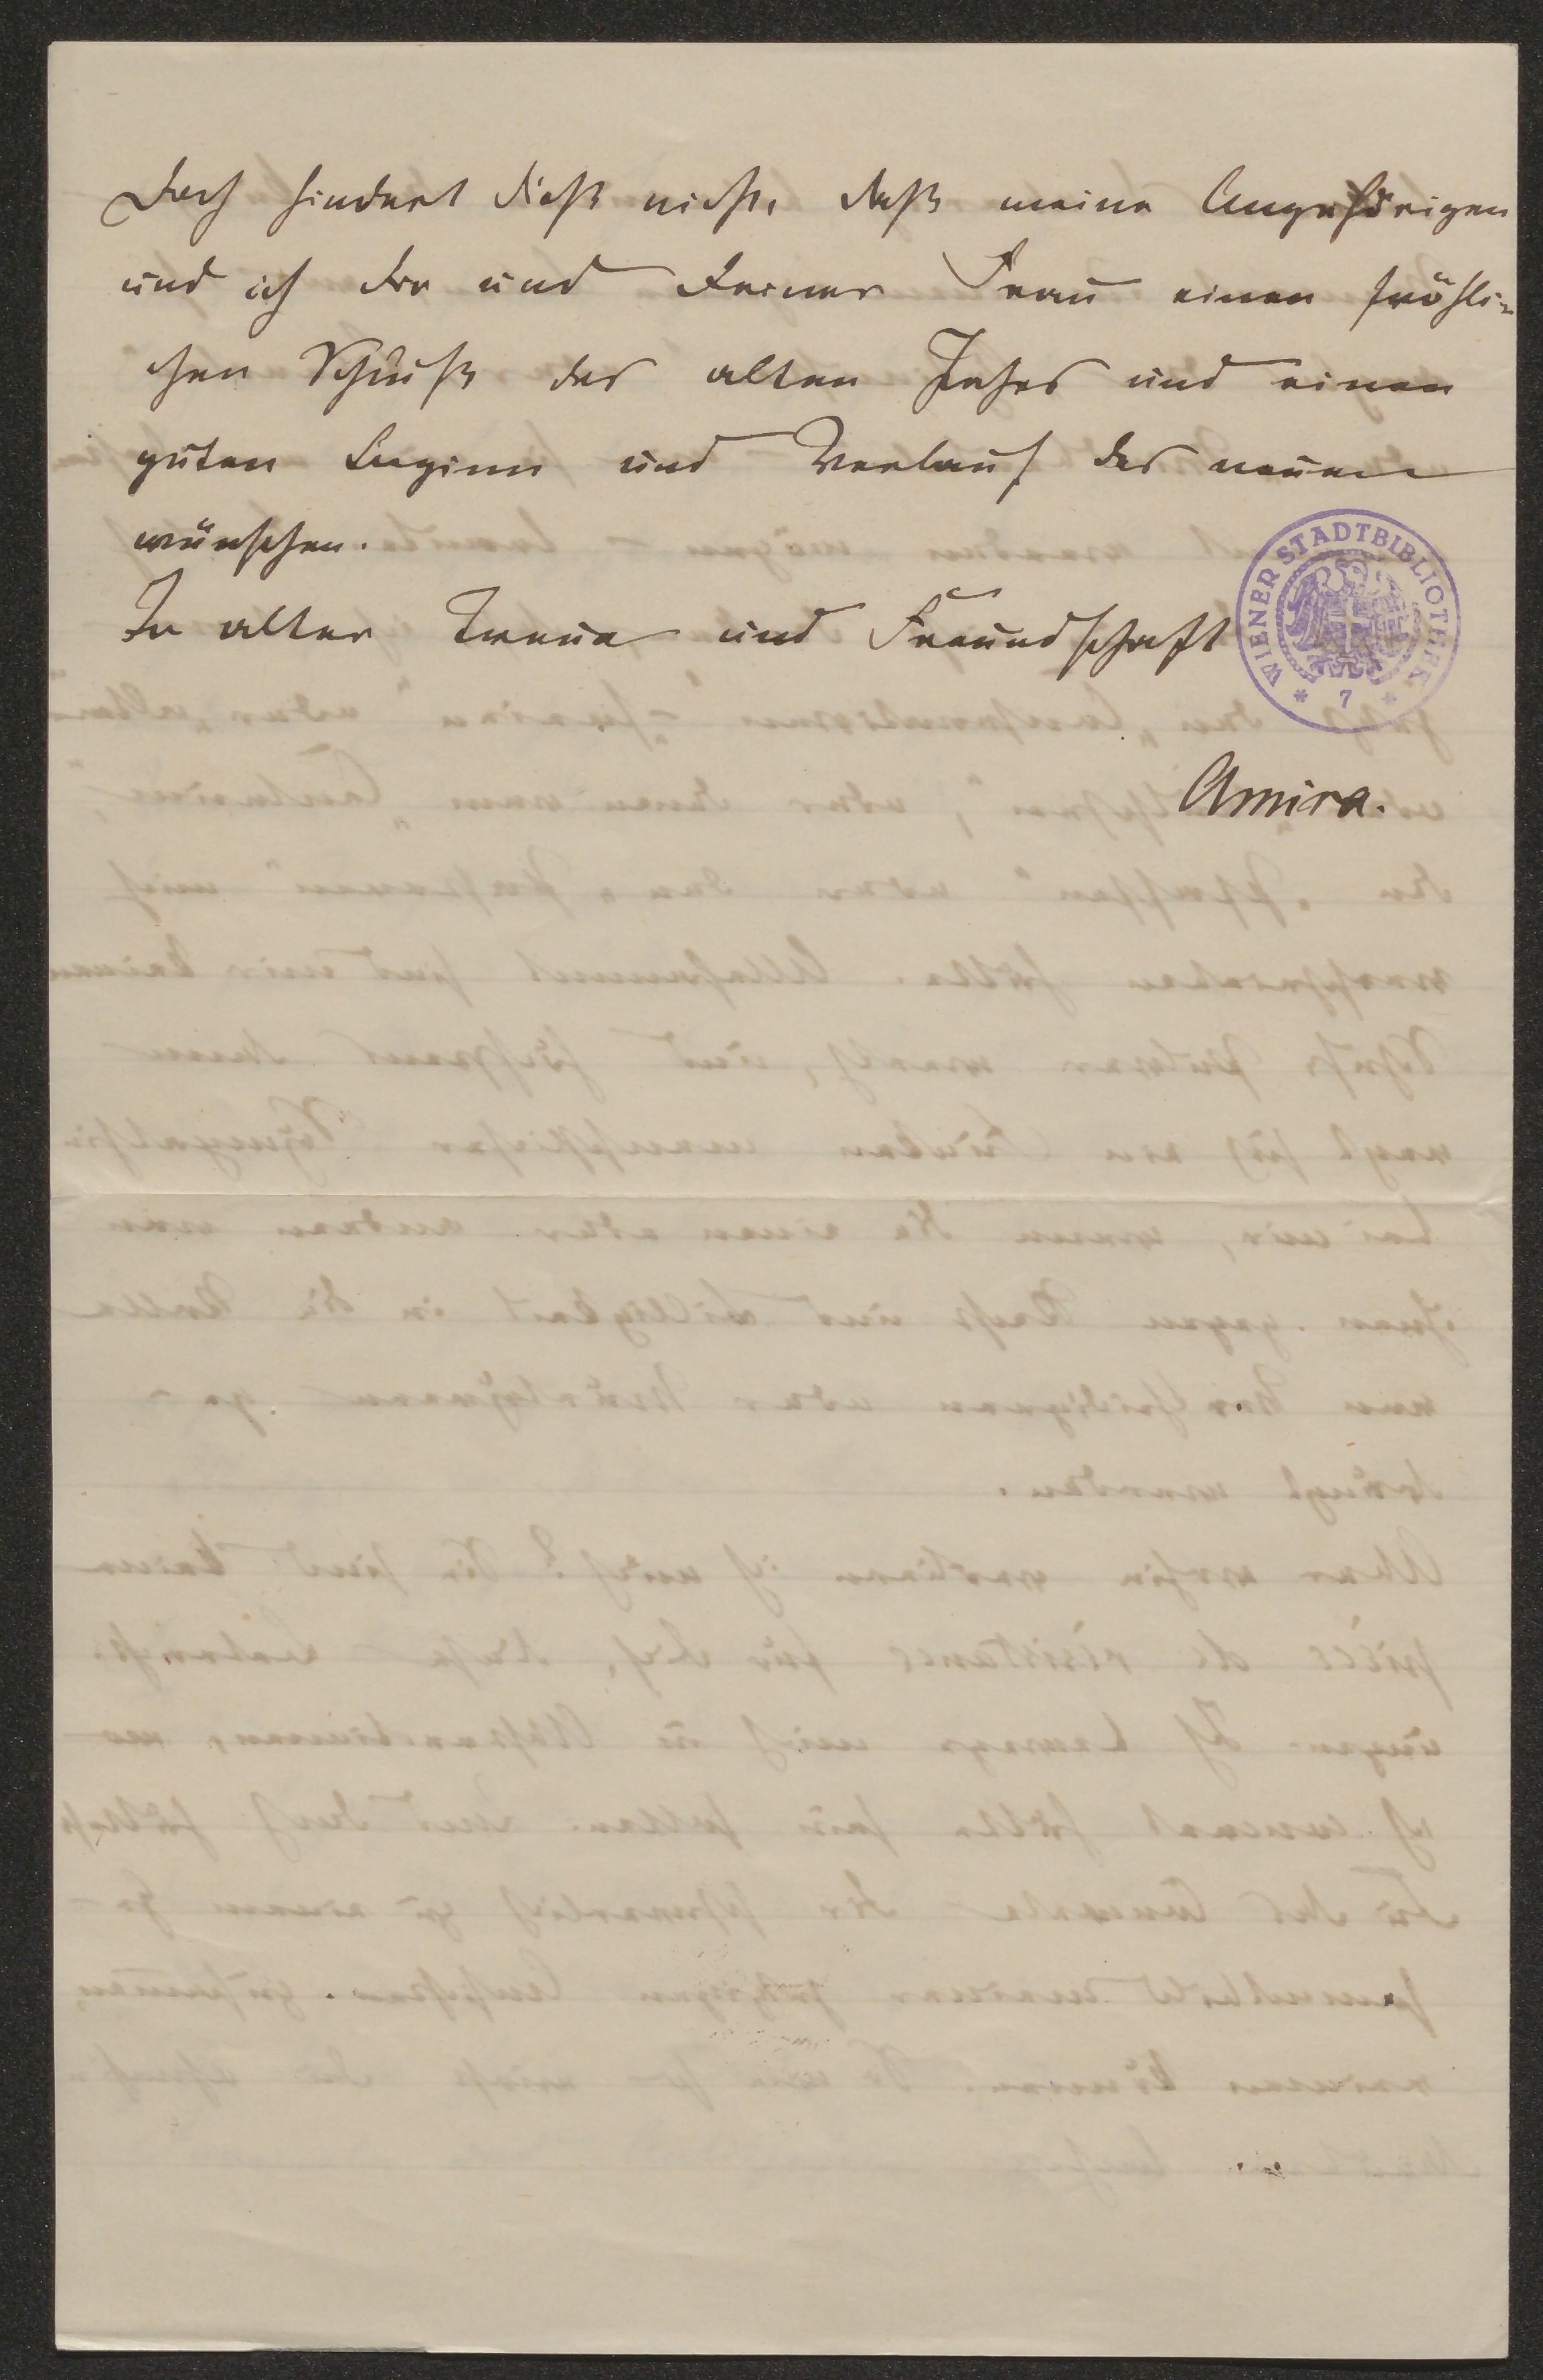 Doch hindert dieß nicht, daß meine Angehörigen
und ich Dir und Deiner Frau einen fröhli-
chen Schluß des alten Jahres und einen
guten Beginn und Verlauf des neuen
wünschen.
In alter Treue und Freundschaft
WIENER STADTBIBLIOTHEK
* 7 *
Amira.